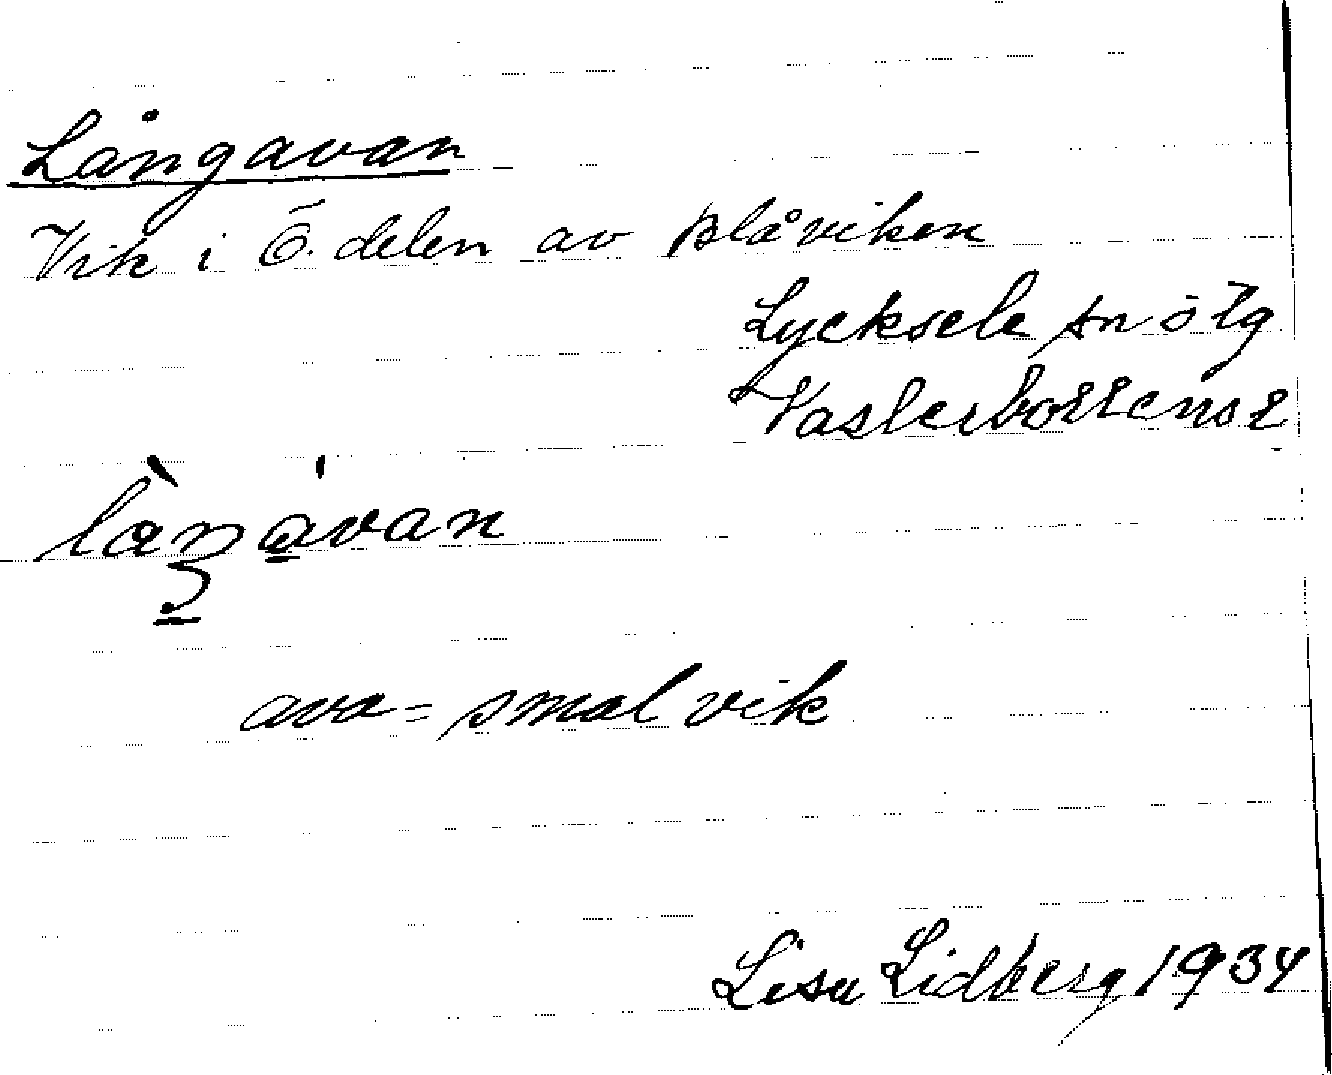 Långavan
Vik i Ö. delen av Blåviken
Lycksele sn ö tg
Västerbottens l
làŋ ávan
ava = smal vik
Lisa Lidberg 1934